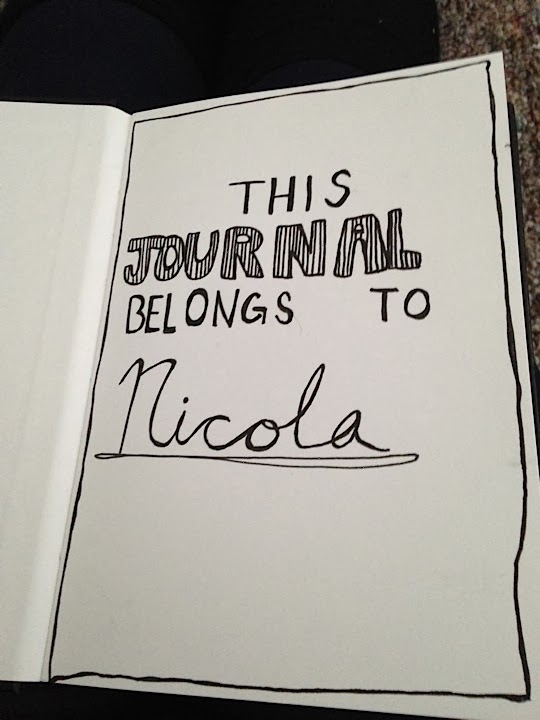 THIS
JOURNAL
BELONGS TO
Nicola